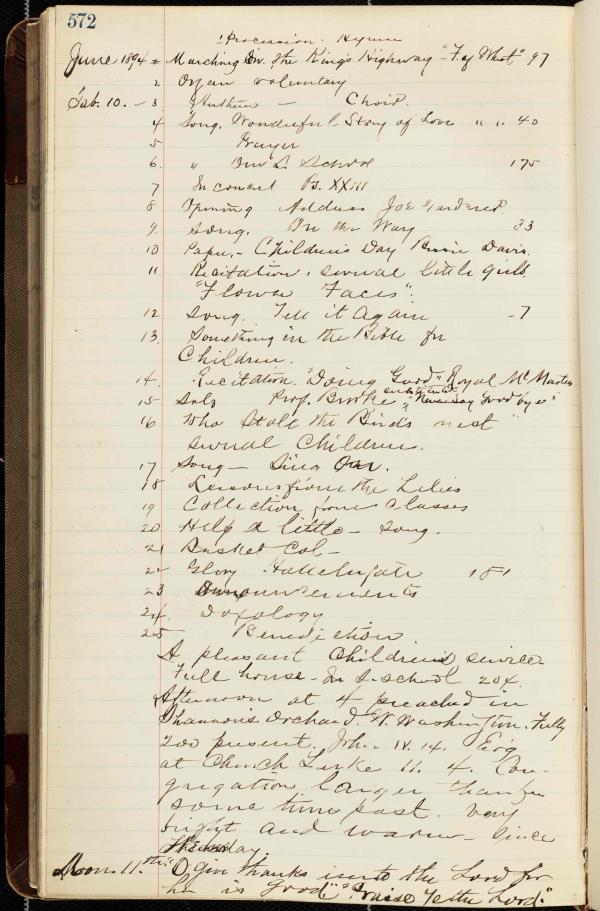 572
Procession. Hymn
June 1894 Marching On. The King's Highway "F of Wheat" 97
2 Organ voluntary
Sab. 10. - 3 Anthem - Choir.
4 Song. Wonderful Story of Love " " 40
5 Prayer
6. " Our S. School 175
7 In concert Ps. XXIII
8 Opening Address Joe Gardener.
9. Song. On the Way 33
10 Paper. - Children's Day Bessie Davis.
11 Recitation. several little girls.
"Flower Faces".
12 Song. Tell it Again -7
13. Something in the Bible for
Children.
14. Recitation. "Doing Good" Royal McMartin
15 Solo Prof. Brooke substitute "Never say Good bye"
16 Who Stole the Birds nest"
several Children.
17 Song - Sing On.
18 Lessons from the Lilies
19 Collection from Classes
20 Help a little - Song.
21 Basket Col -
22 Glory Hallelujah 181
23 Announcements
24. Doxology
25 Benediction.
A pleasant Children's service.
Full house - In S. school 204.
Afternoon at 4 preached in
Shannon's Orchard. W. Washington. Fully
200 present. Joh. 14. 14. Ev'g
at Church Luke 11. 4. Con-
gregation larger than for
some time past. Very
bright and warm - since
Thursday.
Mon. 11.th "O give thanks unto the Lord for
he is good" "Praise Ye the Lord."